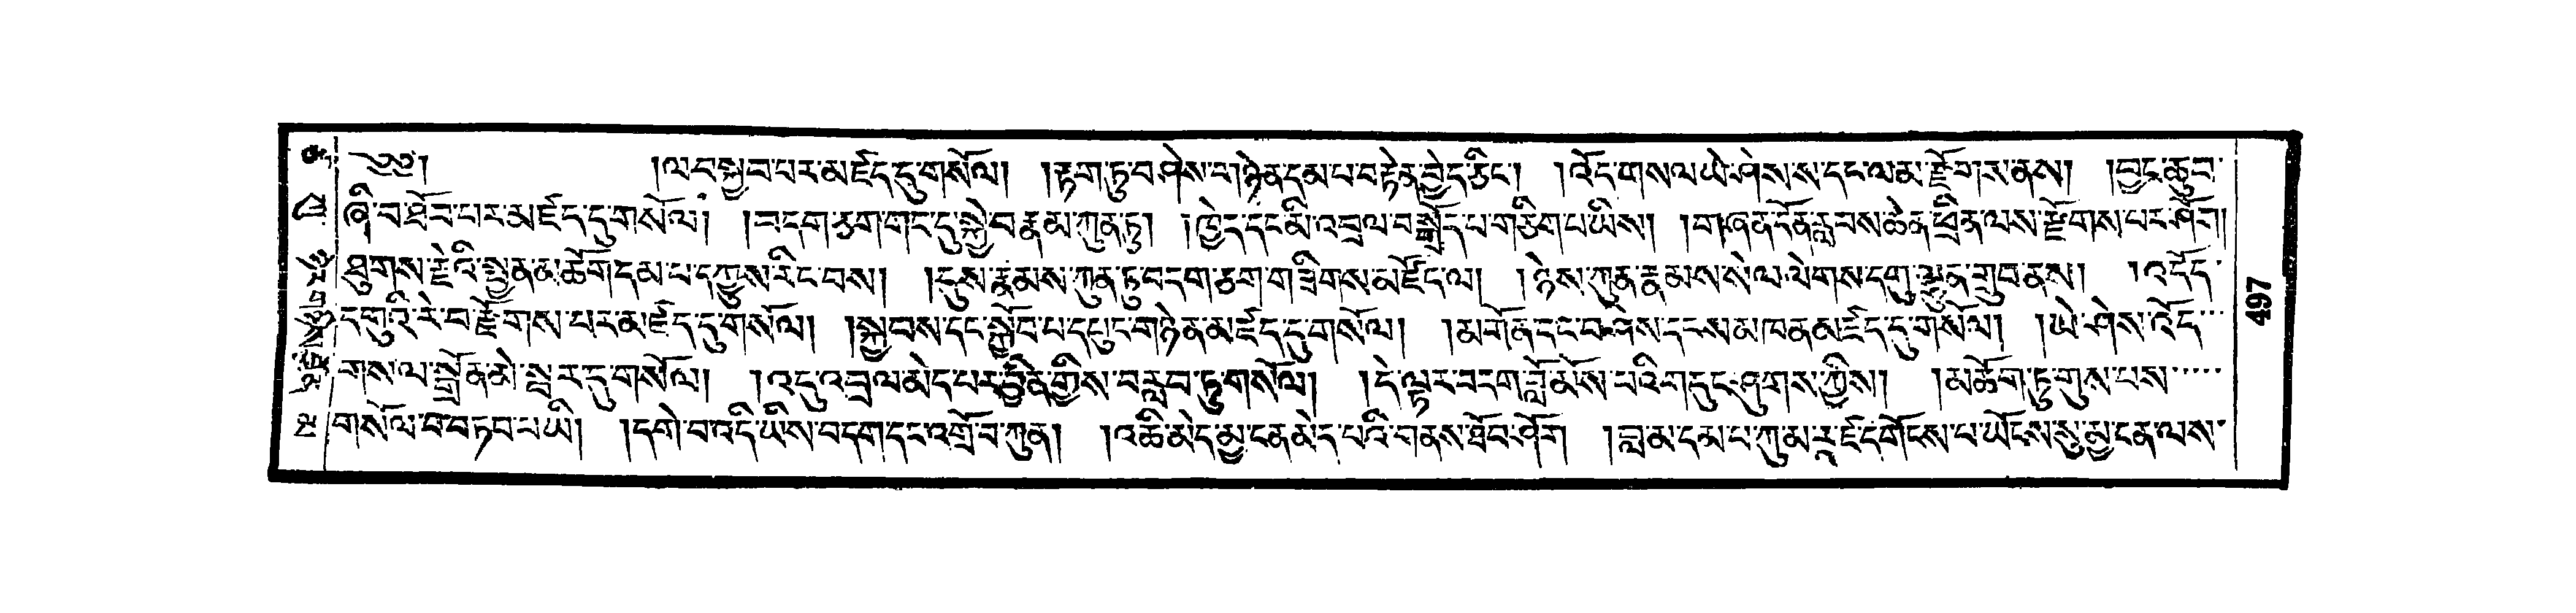 ༄༅། །ལ་བསྐྱབ་པར་མཛད་དུ་གསོལ། །རྟག་ཏུ་བཤེས་པ་གཉེན་དམ་པ་བརྟེན་བྱེད་ཅིང༌། །འོད་གསལ་ཡེ་ཤེས་ས་དང་ལམ་རྫོགས་ནས། །བྱང་ཆུབ་
ཞི་བ་ཐོབ་པར་མཛད་དུ་གསོལ། །བདག་ཅག་གང་དུ་སྐྱེ་བ་རྣམ་ཀུན་ཏུ། །ཁྱེད་དང་མི་འབྲལ་བསྒྲོད་པ་གཅིག་པ་ཡིས། །གཞན་དོན་རླབས་ཆེན་ཕྲིན་ལས་རྫོགས་པར་ཤོག།
ཐུགས་རྗེའི་སྤྱན་མཆོག་དམ་པ་དཀྱུས་རིང་བས། །དུས་རྣམས་ཀུན་ཏུ་བདག་ཅག་གཟིགས་མཛོད་ལ། །ཉེས་ཀུན་རྣམས་སེལ་ལེགས་དགུ་ལྷུན་གྲུབ་ནས། །འདོད་
དགུའི་རེ་བ་རྫོགས་པར་མཛད་དུ་གསོལ། །སྐྱབས་དང་སྐྱོབ་པ་དཔུང་གཉེན་མཛད་དུ་གསོལ། །མགོན་དང་བཤེས་དང་སམ་ཁན་མཛད་དུ་གསོལ། །ཡེ་ཤེས་འོད་
གསལ་སྒྲོན་མེ་སྦར་དུ་གསོལ། །འདུ་འབྲལ་མེད་པར་བྱིན་གྱིས་བརླབ་ཏུ་གསོལ། །དེ་ལྟར་བདག་བློ་མོས་པའི་གདུང་ཤུགས་ཀྱིས། །མཆོག་ཏུ་གུས་པས་
གསོལ་བ་བཏབ་པ་ཡི། །དགེ་བ་འདི་ཡིས་བདག་དང་འགྲོ་བ་ཀུན། །འཆི་མེད་མྱ་ངན་མེད་པའི་གནས་ཐོབ་ཤོག །བླ་མ་དམ་པ་ཀུ་མ་རཱ་ཛ་དགོངས་པ་ཡོངས་སུ་མྱ་ངན་ལས་
497